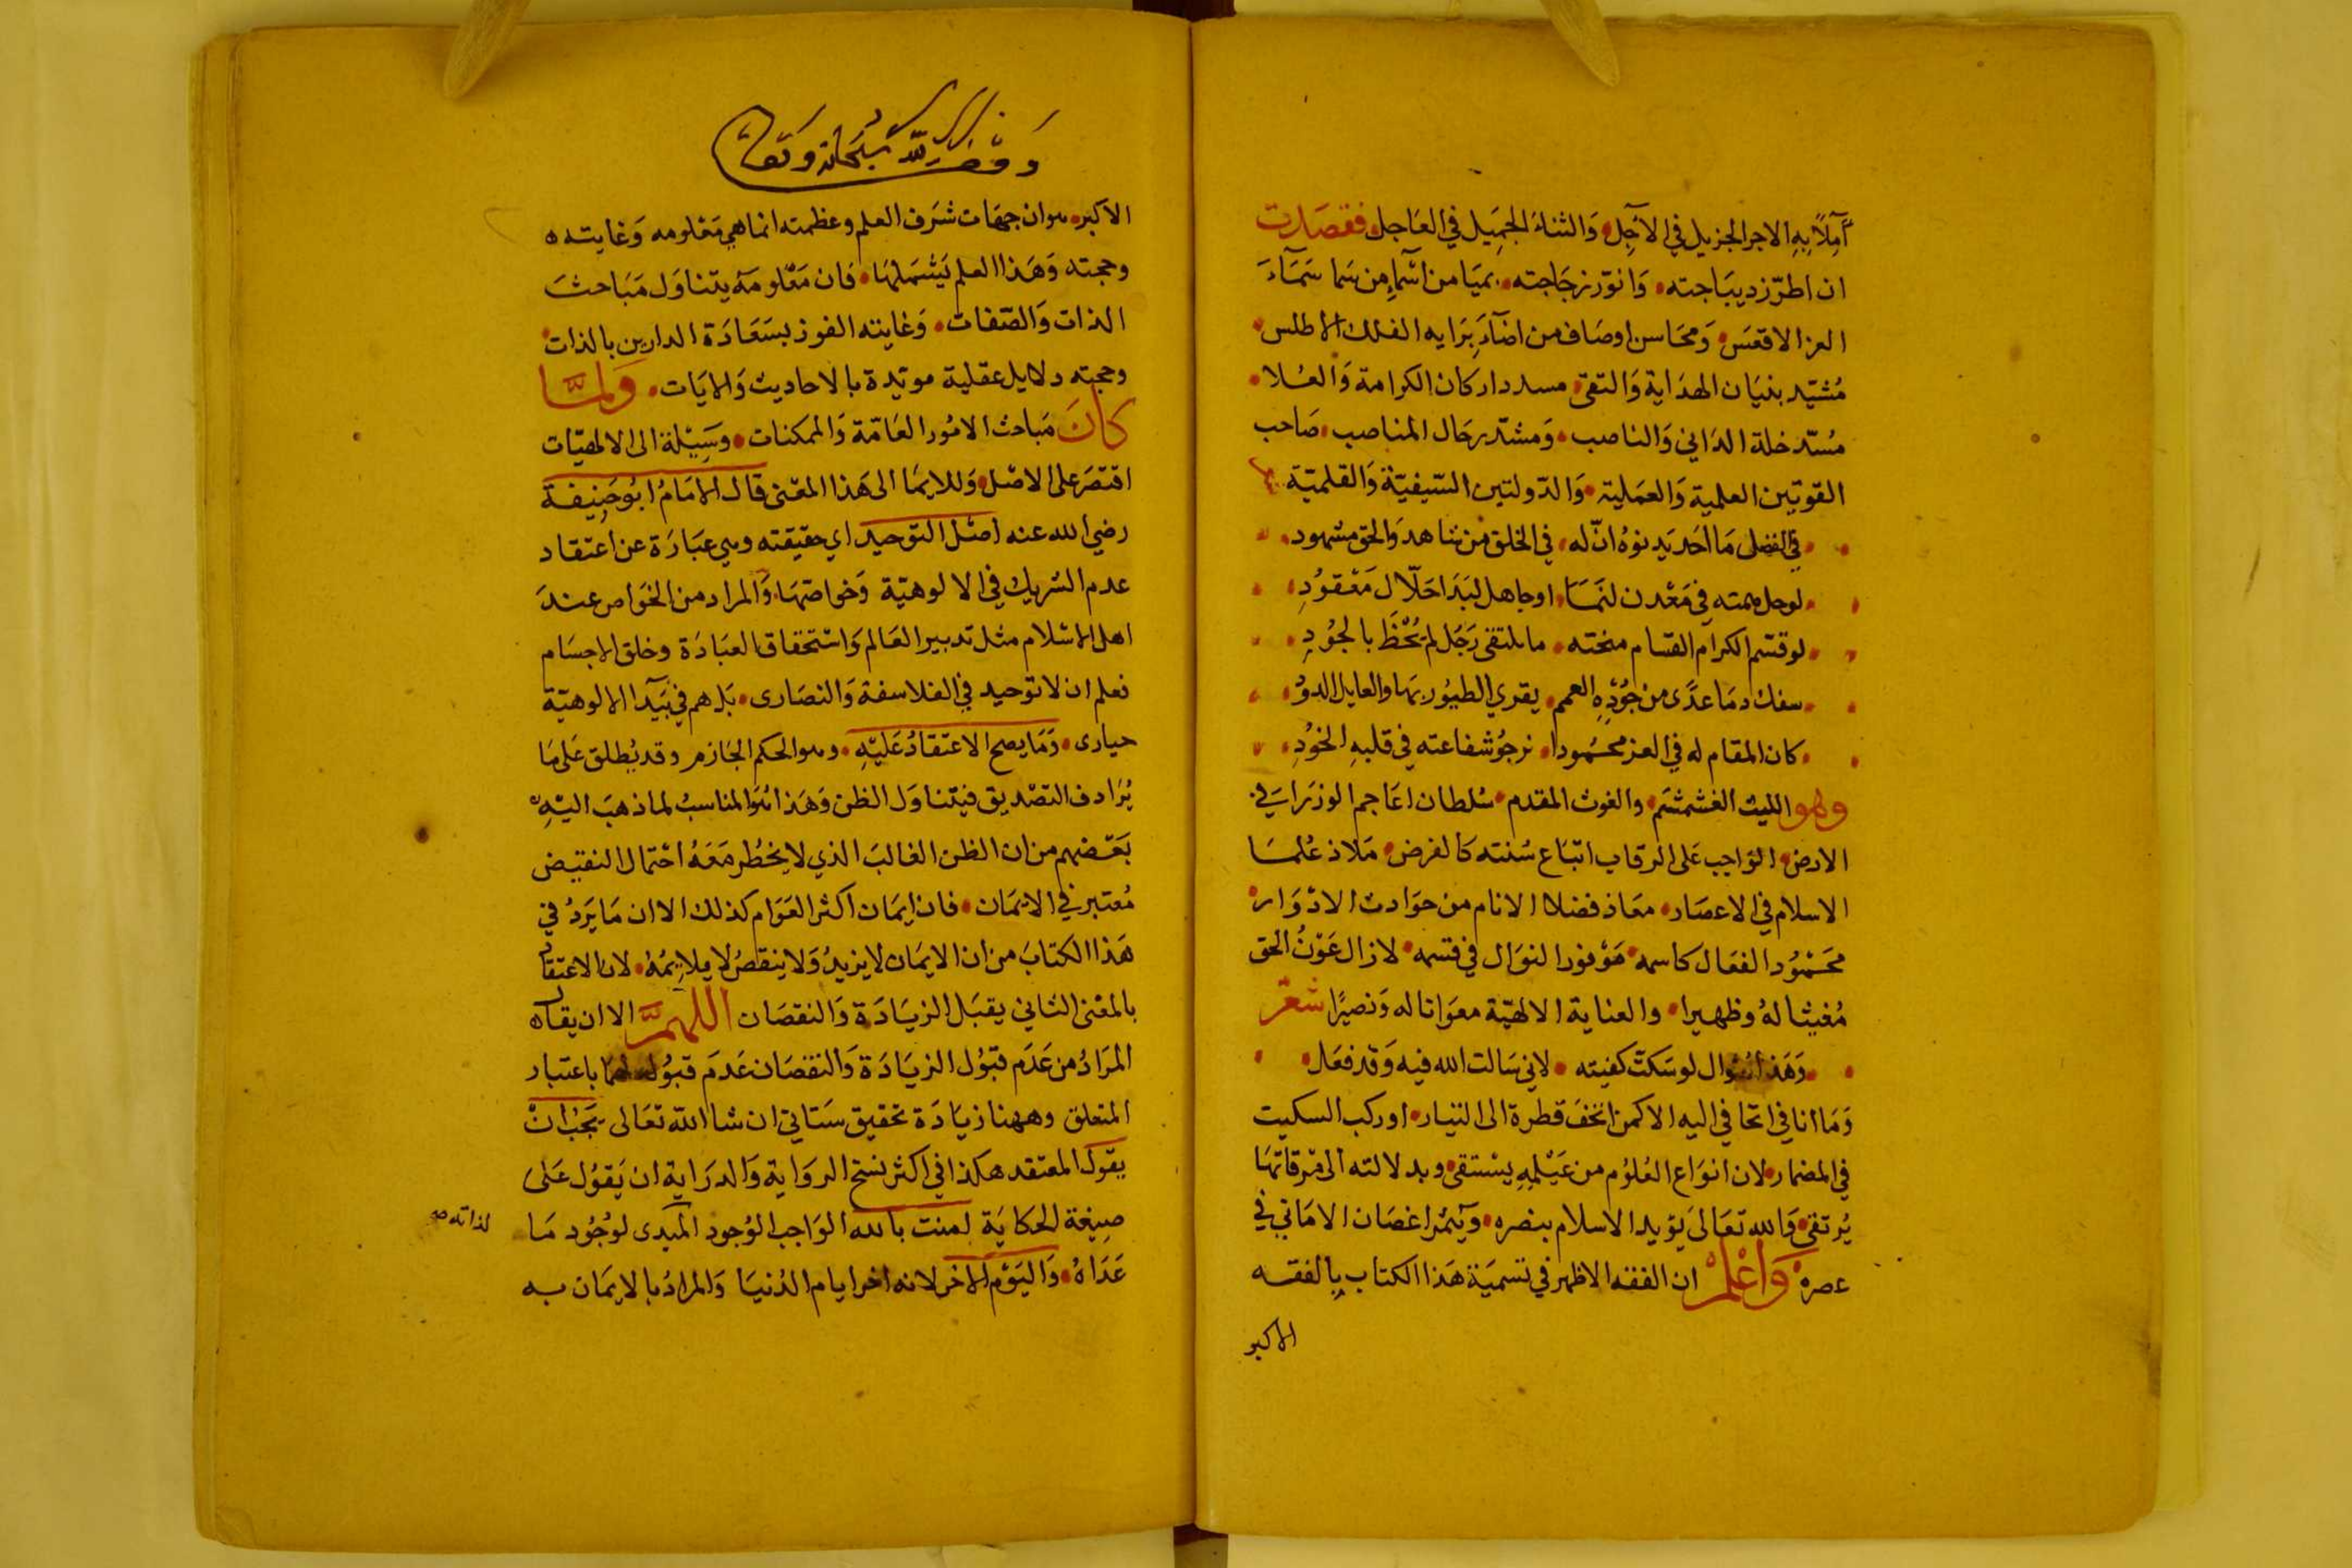 آمِلاً بِهِ الاجر الجزيل في الآجِل وَالثناءَ الجَمِيل في العَاجل فقصَدت
ان اطرّز ديبَاجته وَانوّر زجَاجته بميَامن اسْمآءِ من سَما سَمَآءَ
العز الاقعَس وَمحَاسن اوصَاف من اضآءَ بِرَايه الفلك الاطلس
مُشيّد بنيَان الهدَاية وَالتقى مسدد اركان الكرامة وَالعُلا
مُسدّ خلة الدَاني وَالناصب وَمشدّ رحَال المناصب صَاحب
القوتين العلمية وَالعمَلية وَالدّولتين السّيفيّة وَالقلميّة
في الفضل مَا احَد يَدنوهُ انّ له في الخلق من شاهد وَالحق مشهود
لو حل همته في مَعْدن لنمَا او جاهل لبَدَا حَلّال مَعْقوُدِ
لو قسّم الكرام القسام منحته ما يلتقى رَجَل لم يُحْظَ بالجوُدِ
سفك دمَا عدَى من جُوُدِهِ العمم يقري الطيُور بهَا والعايل الدوُ
كان المقام له في العز محمُودا نرجُو شفاعته في قلبهِ الخوُدِ
وهو الليث الغشمشم والغوث المقدم سُلطان اعَاجم الوزرَاء في
الارض الوَاجب عَلى الرقاب اتبَاع سُنته كالفرض مَلاذ عُلمَا
الاسلام في الاعصَار معَاذ فضلا الانام من حوَادث الادْوَار
محَمُوُد الفعَال كاسمه مَوْفور النوَال في قسمه لازال عَوْنُ الحق
مُغيثا لهُ وظهيرا والعناية الالهيّة معوَانا له وَنصيرًا شعْر
وَهَذا سُؤال لو سَكتّ كفيته لاني سَالت الله فيه وَقد فعَل
وَمَا انا في اتحافي اليه الاكمن اتحفَ قطرة الى التيار او ركب السكيت
في المضمار لان انوَاع العُلوُم من عَيْلمِهِ يسْتقى وبدلالته الى مرقاتهَا
يُرتقى وَالله تعَالىَ يؤيد الاسلام بنصره وَيُثمرُ اغصَان الامَاني في
عصره وَاعْلمْ ان الفقه الاظهر في تسميَة هَذا الكتاب بالفقه
الاكبر
وَقف لله سُبحَانه وتعَا
الاكبر هو ان جهَات شرَف العلم وعظمته انما هي مَعْلومه وَغايته
وحجته وَهَذا العلم يَشْمَلهَا فان مَعْلومَهُ يتناوَل مَبَاحثَ
الذات وَالصّفات وَغايته الفوز بسَعَادَة الدارين بالذات
وحجته دلايل عقلية مويّدة بالاحاديث وَالايَات وَلمَّا
كانَ مَباحث الامُور العَامّة وَالممكنات وسَيِيْلة الى الالهيّات
اقتصَر على الاصْل وَللايمَا الى هَذا المعْنى قال الامَامُ ابُو حَنِيفة
رضي الله عنه اصْل التوحيد اي حقيقته وهي عبَارَة عن اعتقاد
عدم الشريك في الالوهيّة وَخواصّهَا وَالمراد من الخوَاص عندَ
اهل الاسْلام مثل تدبير العَالم وَاسْتحقاق العبَادَة وخلق الاجسَام
فعلم ان لا توحيد في الفلاسفة وَالنصَارى بَل هم في بَيَدآ الالوهيّة
حيارى وَمَا يصح الاعتقادُ عَليْهِ وهو الحكم الجَازم وقد يُطلق عَلى مَا
يُرَادف التصْديق فيتناوَل الظن وَهَذا هُوَ المناسبُ لما ذهبَ اليْهِ
بَعَضهم من ان الظن الغالبَ الذي لا يخطُر مَعَهُ احْتمال النقيض
مُعتبر في الايمَان فان ايمَان اكثر العَوَام كذلك الا ان مَا يَردُ في
هَذا الكتابَ من ان الايمَان لا يزيدُ وَلا ينقصُ لا يلايمُهُ لان الاعتقاد
بالمعْنى الثاني يقبَل الزيَادَة وَالنقصَان اللهمَّ الا ان يقال
المرَادُ من عَدَم قبوُل الزيَادَة وَالنقصَان عَدَمَ قبوُله لهمَا باعتبار
المتعلق وههنا زيَادَة تحقيق سَتَاتي ان شا الله تعَالى يَجَبُ انْ
يقوُل المعتقد هكذا في اكثر نسخ الروَاية وَالدرَاية ان يَقوُل عَلى
صيغة الحكايَة امنت بالله الوَاجب الوُجود المبدى لوُجُود مَا
لذاته صح
عَدَاهُ وَاليَوْم الاخر لانه اخر ايام الدُنيَا وَالمرادُ بالايمَان به